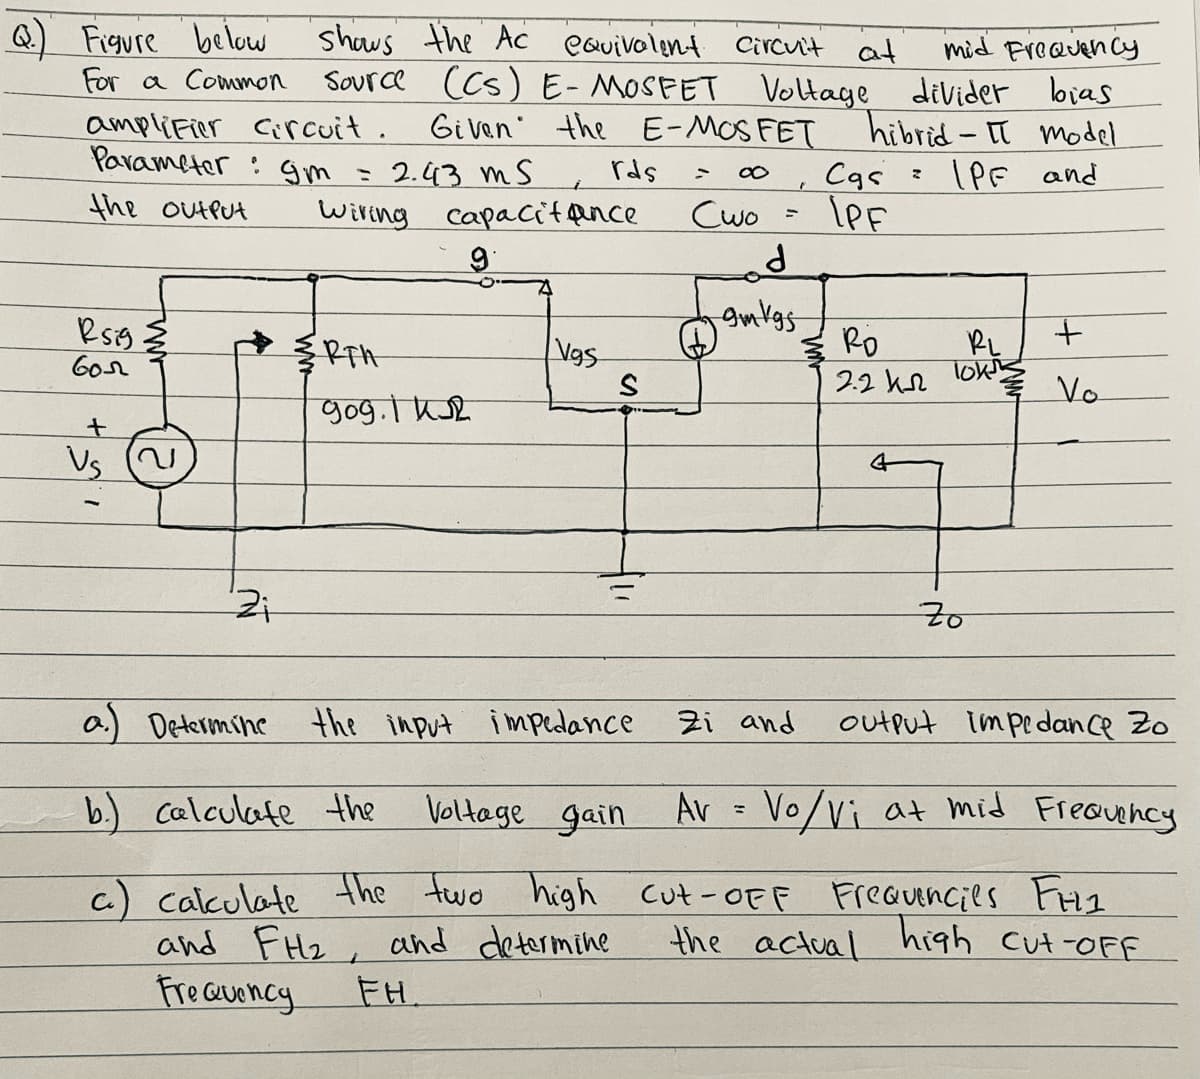 Q.) Figure below shows the Ac equivalent circuit at mid Frequency
For a Common Source (CS) E-MOSFET Voltage divider bias
amplifier circuit. Given the E-MOSFET hibrid-π model
Parameter : gm = 2.43 mS , rds = ∞ , Cgs = 1PF and
the output wiring capacitance Cwo = 1PF
g d
Rsig
60Ω
RTh
909.1 kΩ
Vgs
S
gmVgs
RD
2.2 kΩ
RL
10kΩ
+
Vo
-
+
Vs
-
Zi
Zo
a.) Determine the input impedance Zi and output impedance Zo
b.) calculate the Voltage gain Av = Vo/Vi at mid Frequency
c.) calculate the two high cut-OFF Frequencies FH1
and FH2 , and determine the actual high cut-OFF
Frequency FH.